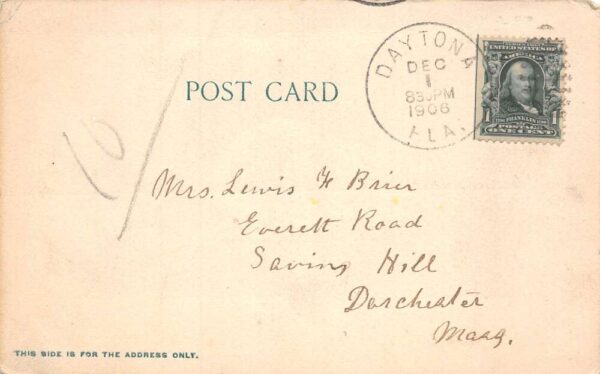 POST CARD
DAYTONA
DEC
1
830PM
1906
FLA.
UNITED STATES OF
AMERICA
1 FRANKLIN 1
POSTAGE
ONE CENT
10/
Mrs. Lewis H Brier
Everett Road
Saving Hill
Dorchester
Mass.
THIS SIDE IS FOR THE ADDRESS ONLY.